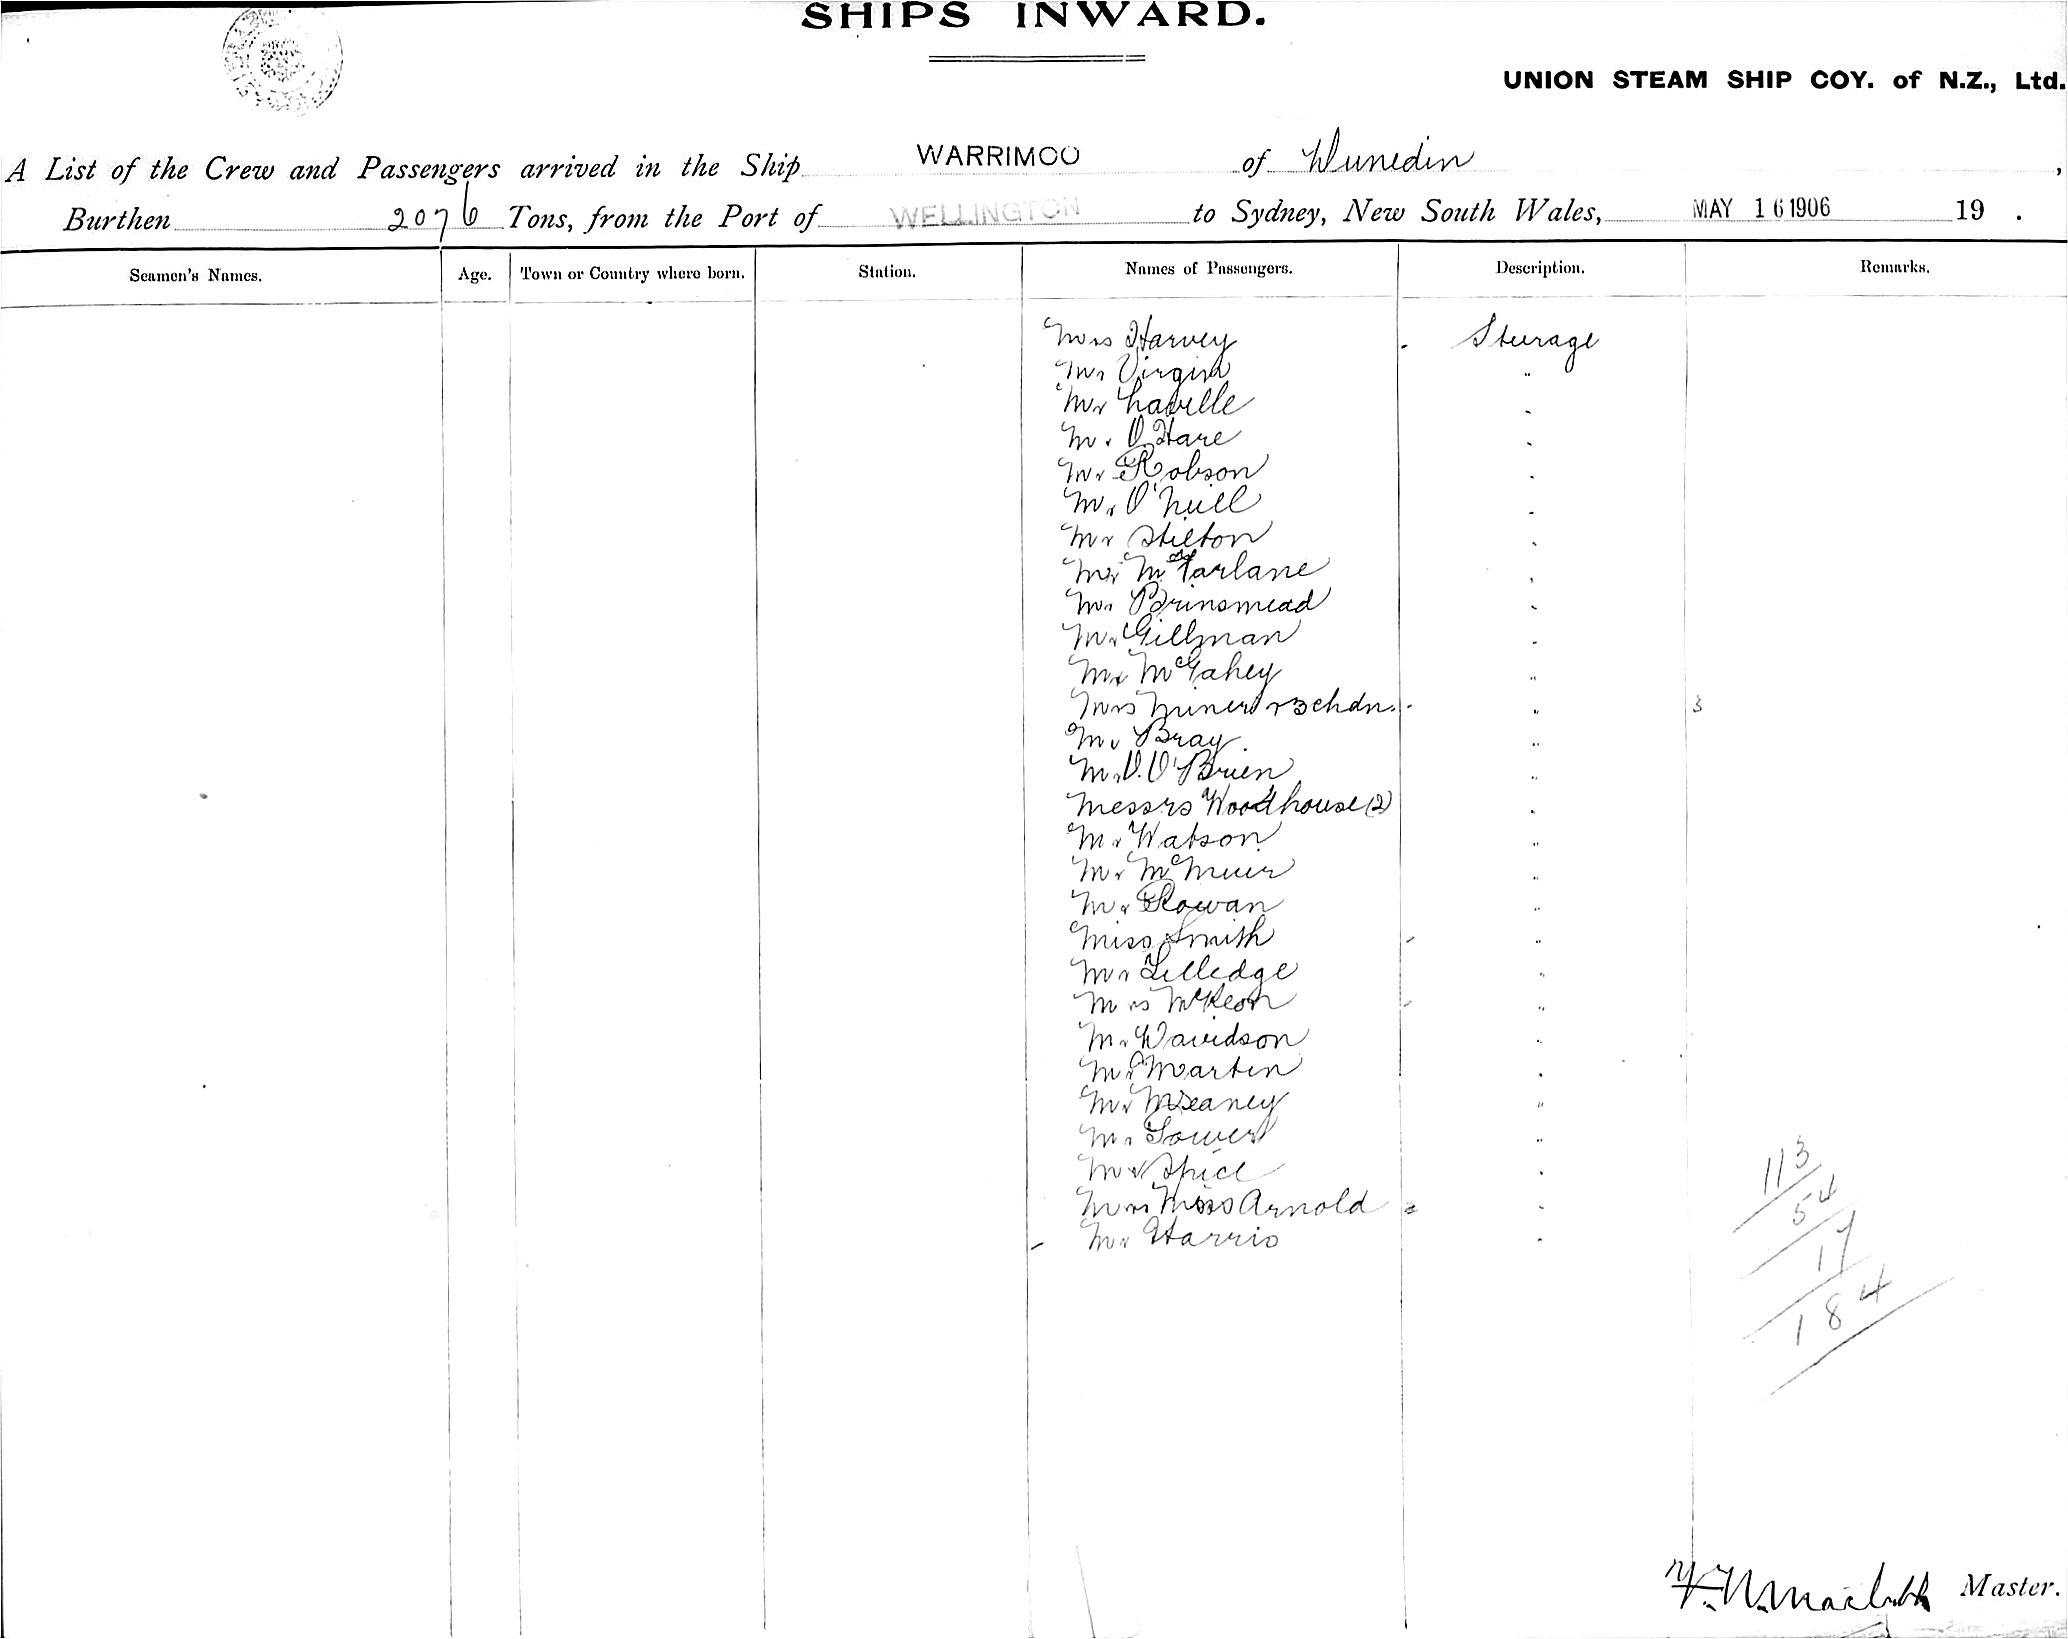 SHIPS INWARD.
UNION STEAM SHIP COY. of N.Z., Ltd.
A List of the Crew and Passengers arrived in the Ship WARRIMOO of Dunedin,
Burthen 2076 Tons, from the Port of WELLINGTON to Sydney, New South Wales, MAY 16 1906 19 .
Seamen's Names. Age. Town or Country where born. Station. Names of Passengers. Description. Remarks.
Mrs Harvey - Steerage
Mr Virgin "
Mr Lavelle "
Mr O'Hare "
Mr Robson "
Mr O'Neill "
Mr Stilton "
Mr McFarlane "
Mr Brinsmead "
Mr Gillman "
Mr McGahey "
Mrs Miner & 3 chdn. " 3
Mr Bray "
Mr O'Brien "
Messrs Woodhouse (2) "
Mr Watson "
Mr McMuir "
Mr Rowan "
Miss Smith "
Mr Lilledge "
Mrs McKeon "
Mr Davidson "
Mr Martin "
Mr "
Mr Sower "
Mr Spice "
Mrs Miss Arnold 2 "
Mr Harris "
113
54
17
184
Master.